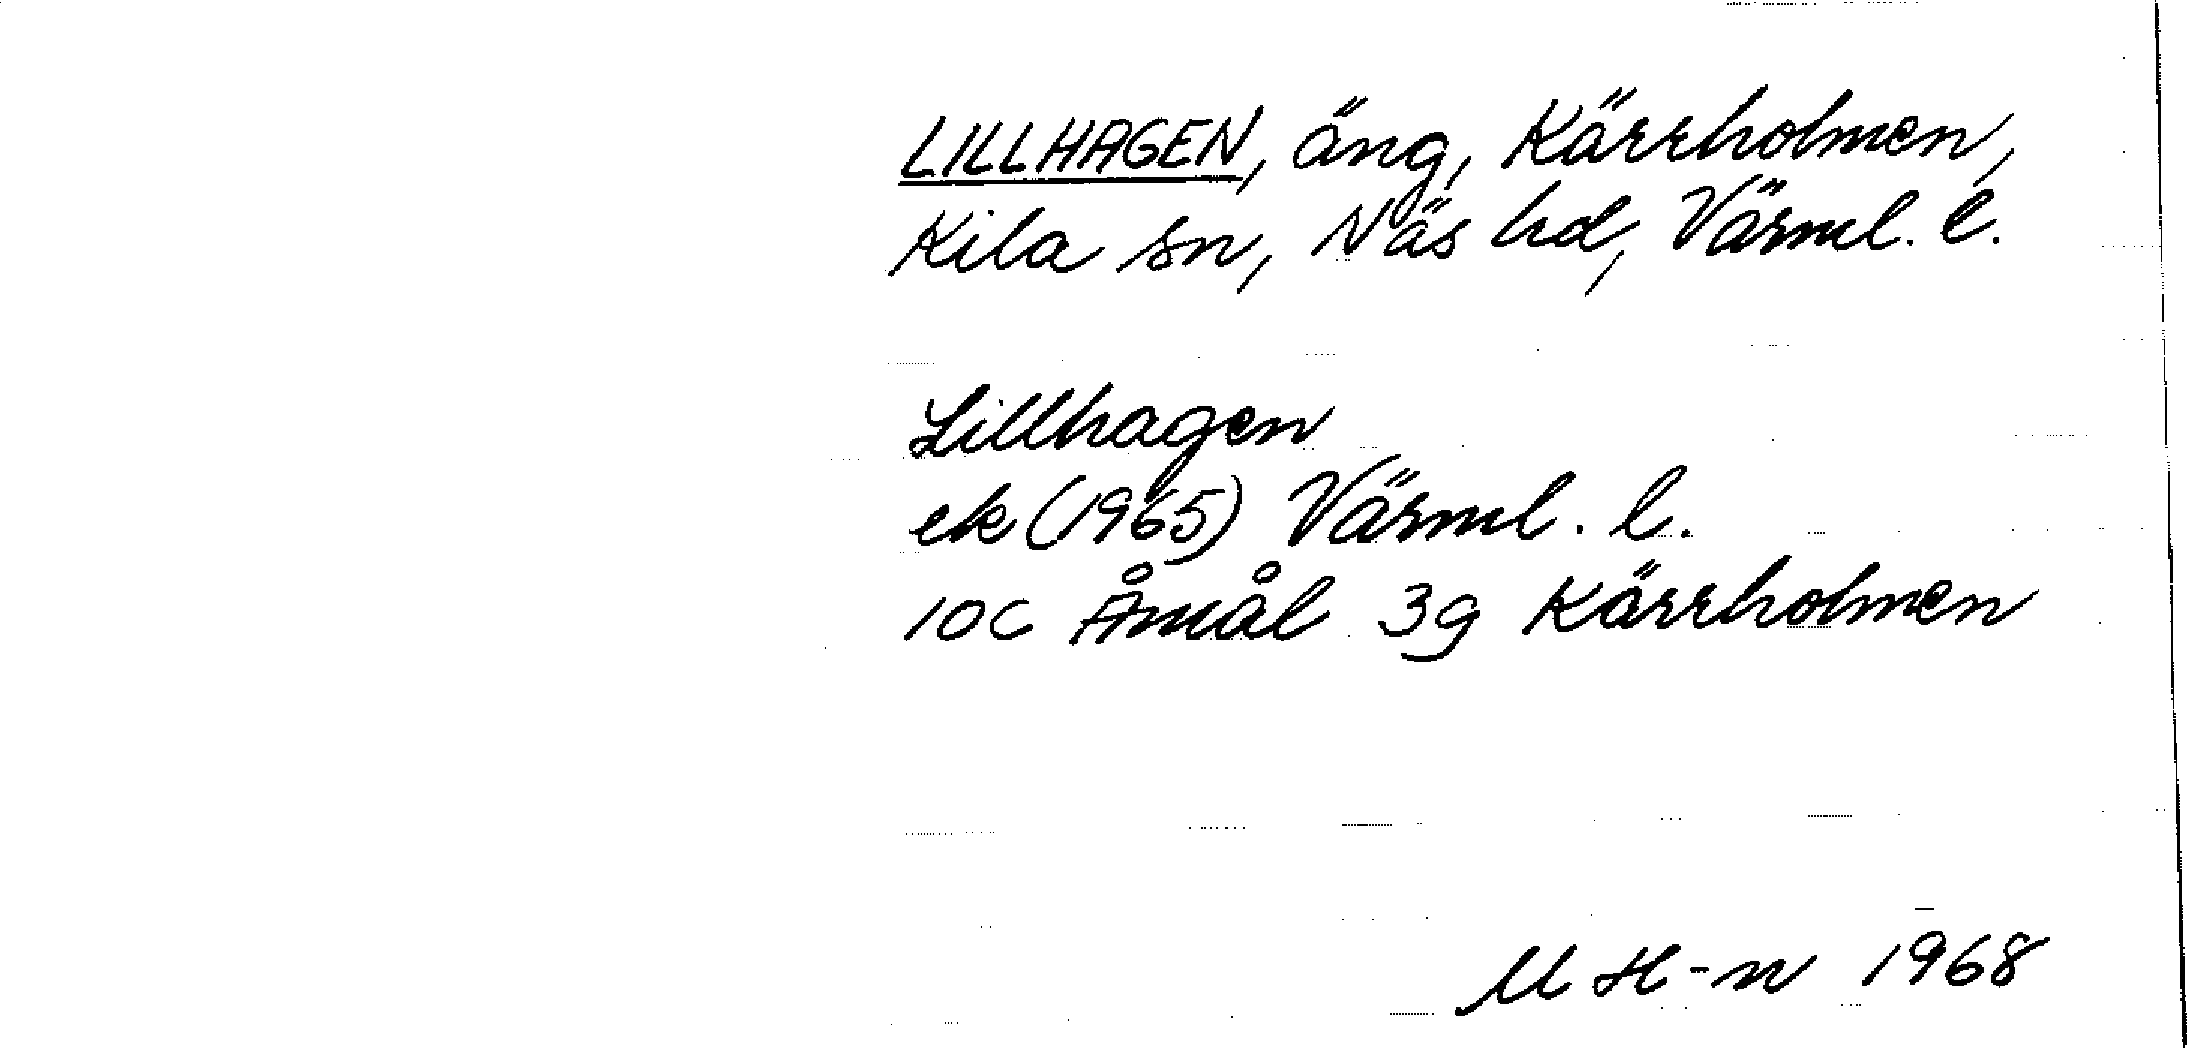 LILLHAGEN, äng, Kärrholmen,
Kila sn, Näs hd, Värml. l.
Lillhagen
ek (1965) Värml. l.
10C Åmål 3g Kärrholmen
M H-n 1968